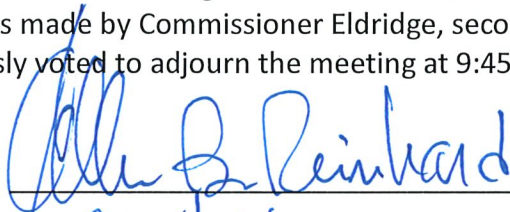 s made by Commissioner Eldridge, seco
sly voted to adjourn the meeting at 9:45
Allen B. Reinhard